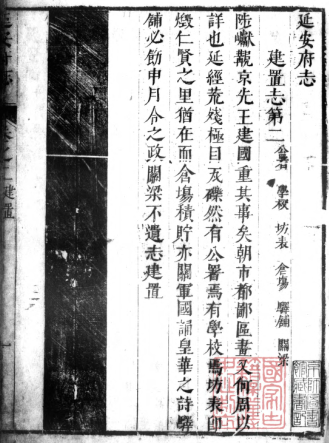 延安府志
建置志第二 公署 學校 坊表 倉場 驛鋪 關梁
陟巘觀京先王建國重其事矣朝市都鄙區畫又何周以
詳也延經荒殘極目瓦礫然有公署焉有學校焉坊表即
燬仁賢之里猶在而倉場積貯亦關軍國誦皇華之詩驛
鋪必飭申月令之政關梁不遺志建置
延安府志
建置